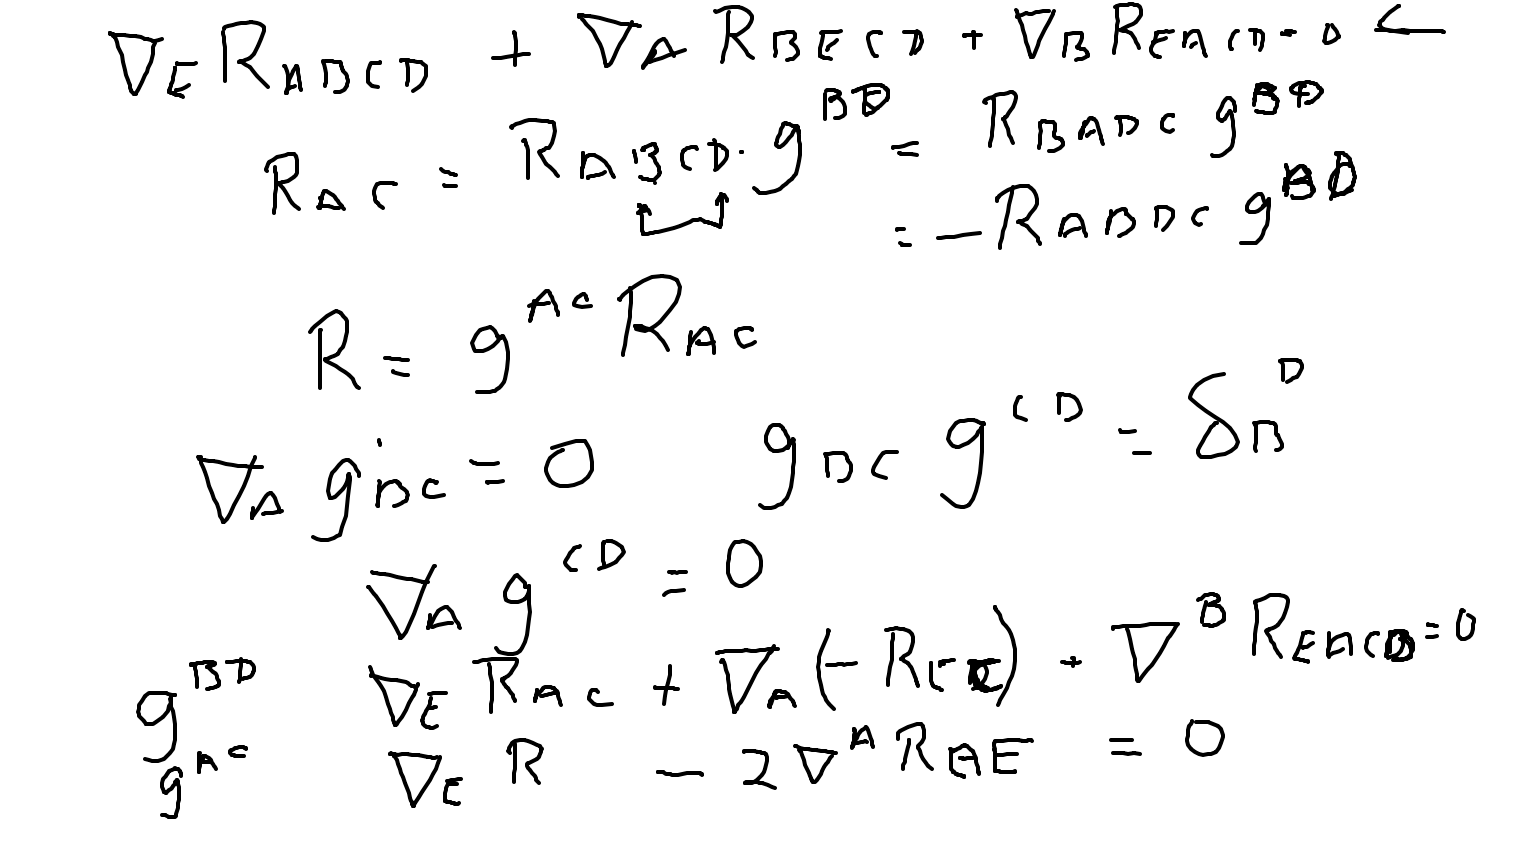 ∇_E R_{ABCD} + ∇_A R_{BECD} + ∇_B R_{EACD} = 0 ←
R_{AC} = R_{ABCD} · g^{BD} = R_{BADC} g^{BD}
= − R_{ABDC} g^{BD}
R = g^{AC} R_{AC}
∇_A g_{BC} = 0 g_{BC} g^{CD} = δ_B^D
∇_A g^{CD} = 0
g^{BD} ∇_E R_{AC} + ∇_A (− R_{EC}) + ∇^B R_{EACB} = 0
g^{AC} ∇_E R − 2 ∇^A R_{AE} = 0